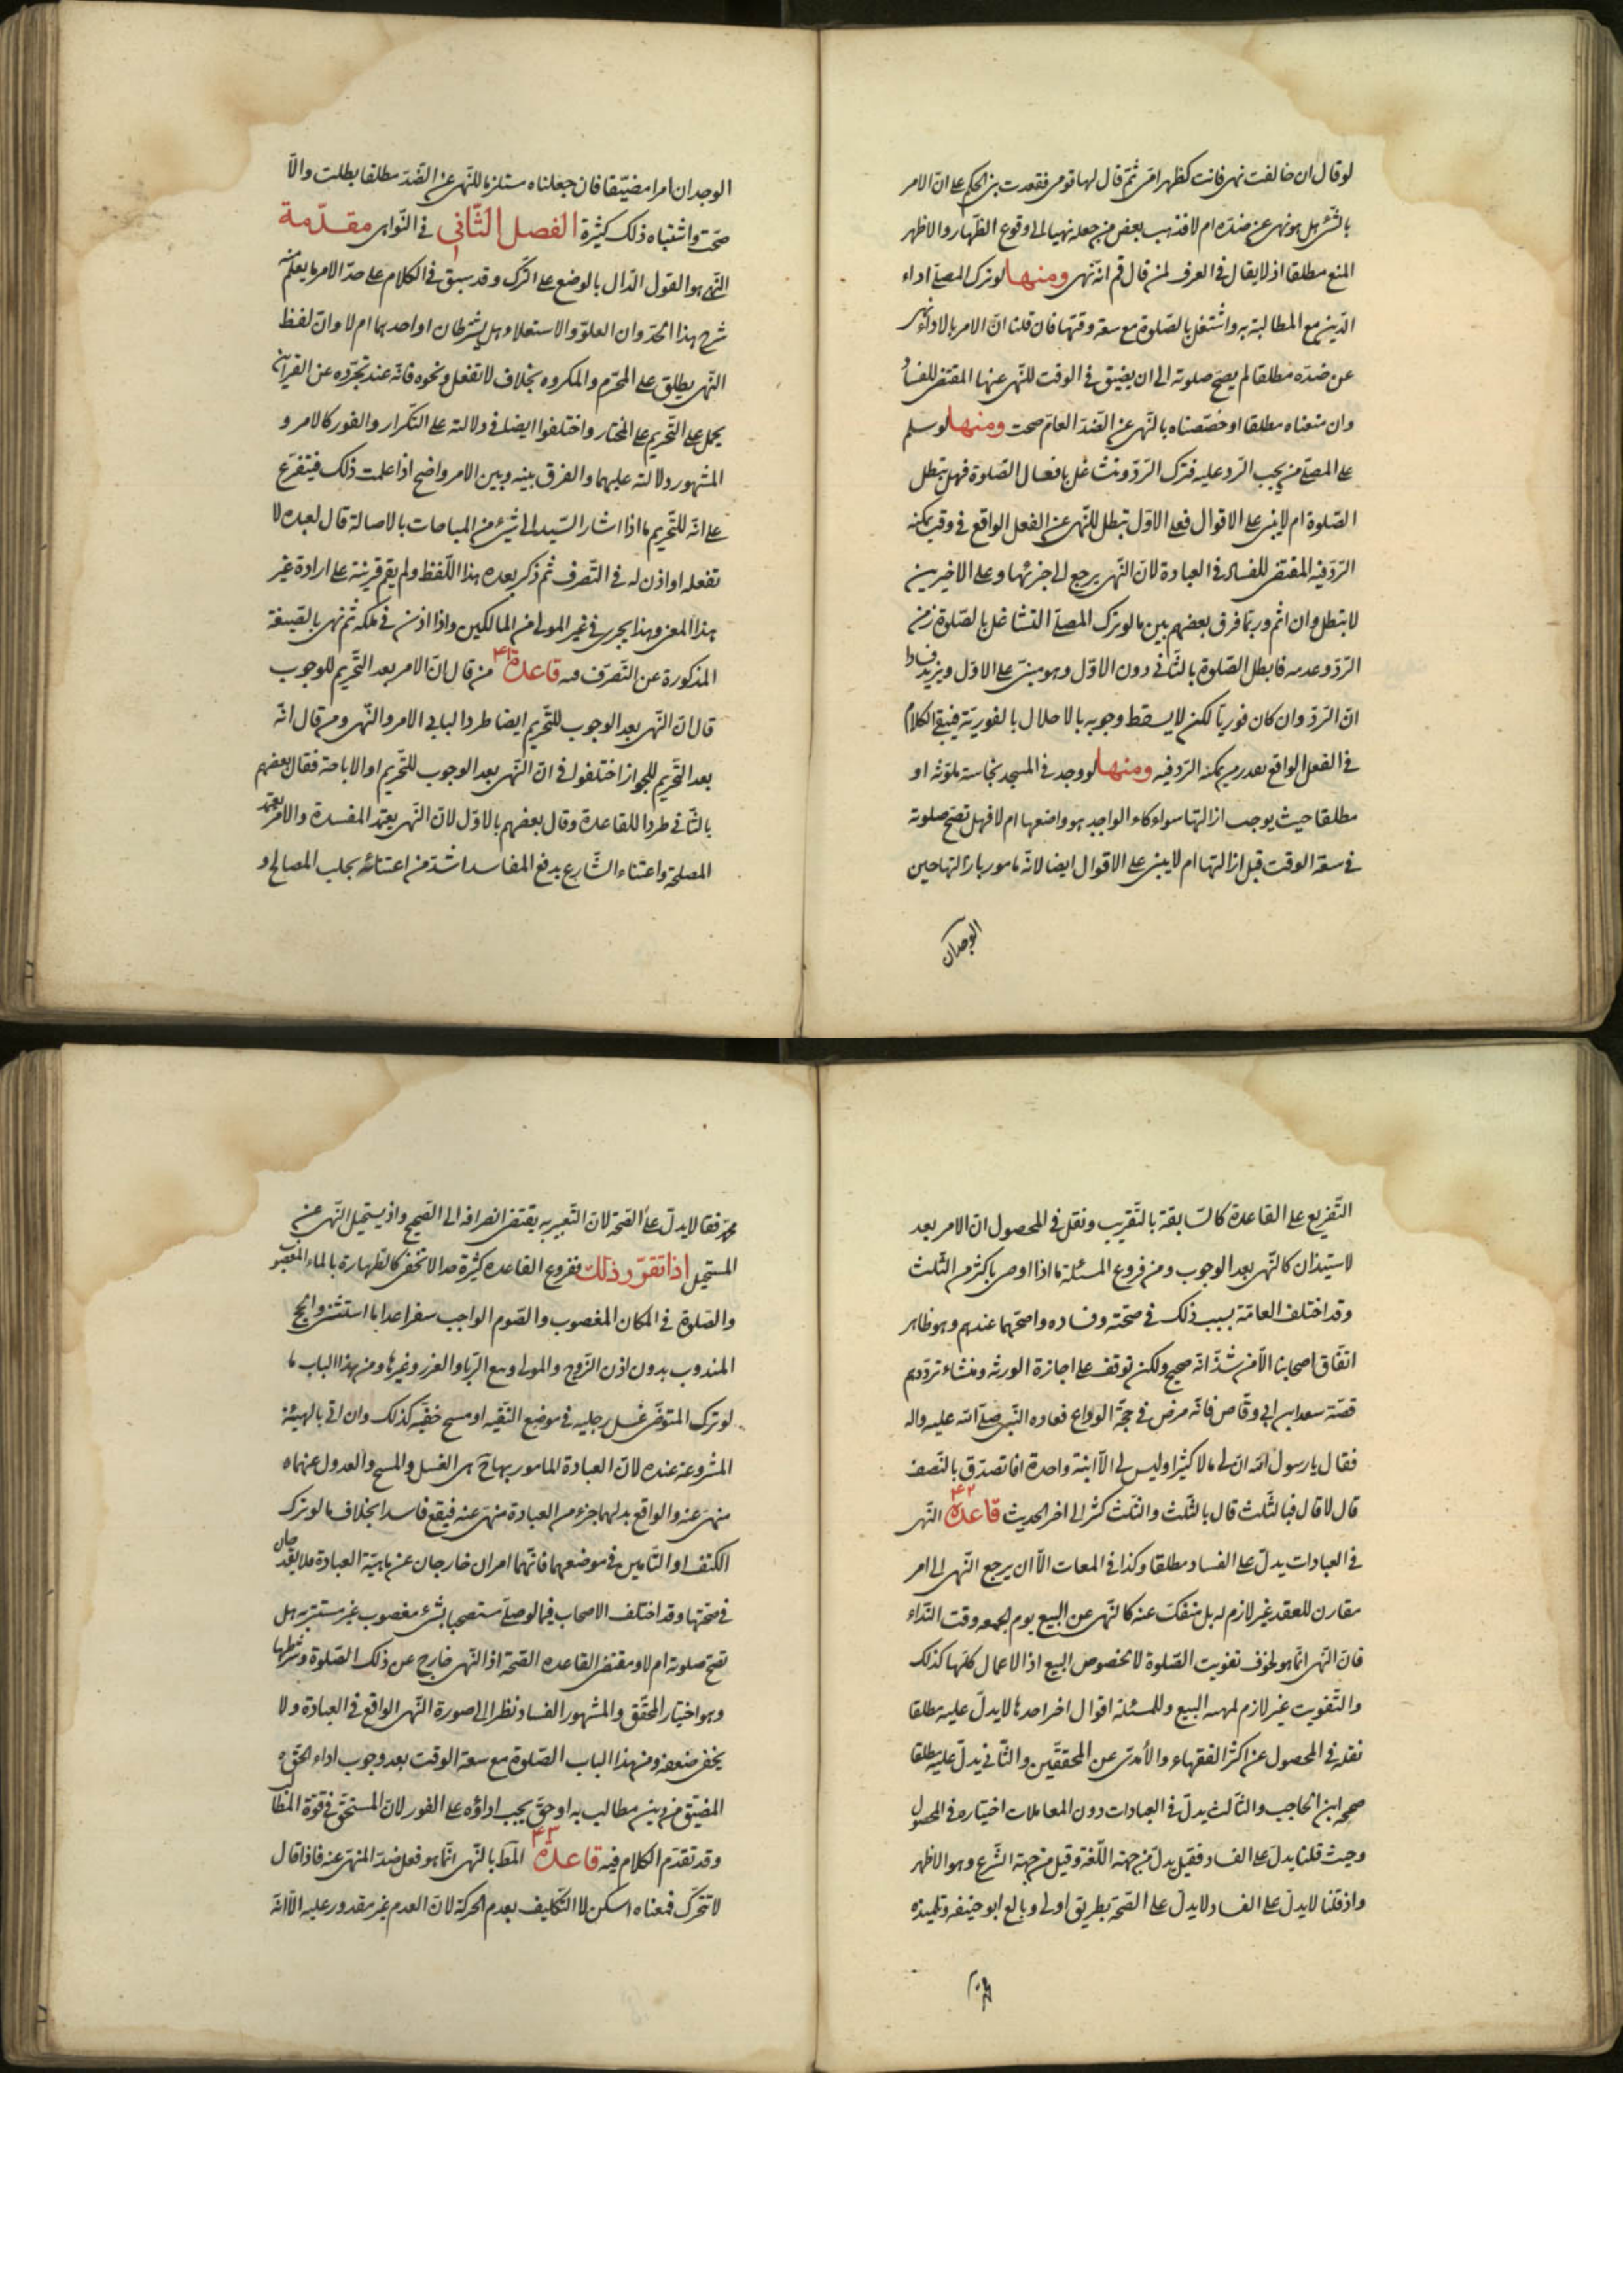 لو قال ان خالفت نهيي فانت كظهر امي ثم قال لها قومي فقعدت بني الحكم على ان الامر
بالشئ هل هو نهي عن ضده ام لا فذهب بعض من جعله نهيا الى وقوع الظهار والاظهر
المنع مطلقا اذ لا يقال في العرف لمن قال قم انه نهى ومنها لو ترك المصلى اداء
الدين مع المطالبة به واشتغل بالصلوة مع سعة وقتها فان قلنا ان الامر بالاداء نهى
عن ضده مطلقا لم يصح صلوته الى ان يضيق في الوقت للنهى عنها المقتضى للفساد
وان منعناه مطلقا او خصصناه بالنهى عن الضد العام صحت ومنها لو سلم
على المصلى من يجب الرد عليه فترك الرد وتشاغل بافعال الصلوة فهل تبطل
الصلوة ام لا يبنى على الاقوال فعلى الاول تبطل للنهى عن الفعل الواقع في وقت يمكنه
الرد فيه المقتضى للفساد في العبادة لان النهى يرجع الى جزئها وعلى الاخيرين
لا تبطل وان اثم وربما فرق بعضهم بين ما لو ترك المصلى التشاغل بالصلوة زمن
الرد وعدمه فابطل الصلوة بالثاني دون الاول وهو مبنى على الاول ويزيد فسادا
ان الرد وان كان فوريا لكن لا يسقط وجوبه بالاخلال بالفورية فيبقى الكلام
في الفعل الواقع بعد زمن يمكنه الرد فيه ومنها لو وجد في المسجد نجاسة ملوثة او
مطلقا حيث يوجب ازالتها سواء كان الواجد هو واضعها ام لا فهل تصح صلوته
في سعة الوقت قبل ازالتها ام لا يبنى على الاقوال ايضا لانه مامور بازالتها حين
الوجدان
الوجدان امرا مضيقا فان جعلناه مستلزما للنهى عن الضد مطلقا بطلت والا
صحت واشتباه ذلك كثيرة الفصل الثاني في النواهى مقدمة
النهى هو القول الدال بالوضع على الترك وقد سبق في الكلام على حد الامر ما يعلم منه
شرح هذا الحد وان العلو والاستعلاء هل يشترطان او احدهما ام لا وان لفظ
النهى يطلق على المحرم والمكروه بخلاف لا تفعل ونحوه فانه عند تجرده عن القرآئن
يحمل على التحريم على المختار واختلفوا ايضا في دلالته على التكرار والفور كالامر و
المشهور دلالته عليهما والفرق بينه وبين الامر واضح اذا علمت ذلك فيتفرع
على انه للتحريم ما اذا اشار السيد الى شئ من المباحات بالاصالة قال لعبده لا
تفعله او اذن له في التصرف ثم ذكر بعده هذا اللفظ ولم يقم قرينة على ارادة غير
هذا المعنى وهذا يجرى في غير المولى من المالكين واذا اذن في ملكه ثم نهى بالصيغة
المذكورة عن التصرف فيه قاعدة ٤١ من قال ان الامر بعد التحريم للوجوب
قال ان النهى بعد الوجوب للتحريم ايضا طردا لبابي الامر والنهى ومن قال انه
بعد التحريم للجواز اختلفوا في ان النهى بعد الوجوب للتحريم او الاباحة فقال بعضهم
بالثاني طردا للقاعدة وقال بعضهم بالاول لان النهى يعتمد المفسدة والامر يعتمد
المصلحة واعتناء الشارع بدفع المفاسد اشد من اعتنائه بجلب المصالح و
التفريع على القاعدة كالسابقة بالتقريب ونقل في المحصول ان الامر بعد
الاستيذان كالنهى بعد الوجوب ومن فروع المسئلة ما اذا اوصى باكثر من الثلث
وقد اختلف العامة بسبب ذلك في صحته وفساده واصحهما عندهم وهو ظاهر
اتفاق اصحابنا الا من شذ انه صحيح ولكن توقف على اجازة الورثه ومنشاء ترددهم
قصة سعد ابن ابي وقاص فانه مرض في حجة الوداع فعاده النبي صلى الله عليه واله
فقال يا رسول الله ان لى مالا كثيرا وليس لى الا ابنة واحدة افاتصدق بالنصف
قال لا قال فبالثلث قال بالثلث والثلث كثر الى اخر الحديث قاعدة ٤٢ النهى
في العبادات يدل على الفساد مطلقا وكذا في المعات الا ان يرجع النهى الى امر
مقارن للعقد غير لازم له بل منفك عنه كالنهى عن البيع يوم الجمعه وقت النداء
فان النهى انما هو لخوف تفويت الصلوة لا لخصوص البيع اذ الاعمال كلها كذلك
والتفويت غير لازم لمهية البيع وللمسئلة اقوال اخر احدها لا يدل عليه مطلقا
نقله في المحصول عن اكثر الفقهاء والآمدى عن المحققين والثاني يدل عليه مطلقا
صححه ابن الحاجب والثالث يدل في العبادات دون المعاملات اختياره في المحصول
وحيث قلنا يدل على الفساد فقيل يدل من جهة اللغة وقيل من جهة الشرع وهو الاظهر
واذ قلنا لا يدل على الفساد لا يدل على الصحة بطريق اولى وبالغ ابو حنيفه وتلميذه
محمد
محمد فقالا يدل على الصحة لان التعبير به يقتضى انصرافه الى الصحيح واذ يستحيل النهى عن
المستحيل اذا تقرر ذلك ففروع القاعده كثيرة جدا لا تخفى كالطهارة بالماء المغصوب
والصلوة في المكان المغصوب والصوم الواجب سفرا عدا ما استثنى والحج
المندوب بدون اذن الزوج والمولى وبيع الربا والغرر وغيرها ومن هذا الباب ما
لو ترك المتوضى غسل رجليه في موضع التقيه او مسح خفيه كذلك وان اتى بالهيئة
المشروعة عنده لان العبادة المامور بها ح هى الغسل والمسح والعدول عنهما
منهى عنه والواقع بدلهما جزء من العبادة منهى عنه فيقع فاسدا بخلاف ما لو ترك
الكتف او التامين في موضعهما فانهما امران خارجان عن ماهية العبادة فلا يقدحان
في صحتها وقد اختلف الاصحاب فيما لو صلى مستصحبا بشئ مغصوب غير مستتر به هل
تصح صلوته ام لا ومقتضى القاعده الصحة اذ النهى خارج عن ذلك الصلوة وشرطها
وهو اختيار المحقق والمشهور الفساد نظرا الى صورة النهى الواقع في العبادة ولا
يخفى ضعفه ومن هذا الباب الصلوة مع سعة الوقت بعد وجوب اداء الحق
المضيق من دين مطالب به او حق يجب اداؤه على الفور لان المستحق في قوة المطالب
وقد تقدم الكلام فيه قاعدة ٤٣ المط بالنهى انما هو فعل ضد المنهى عنه فاذا قال
لا تتحرك فمعناه اسكن لا التكليف بعدم الحركة لان العدم غير مقدور عليه الا انه